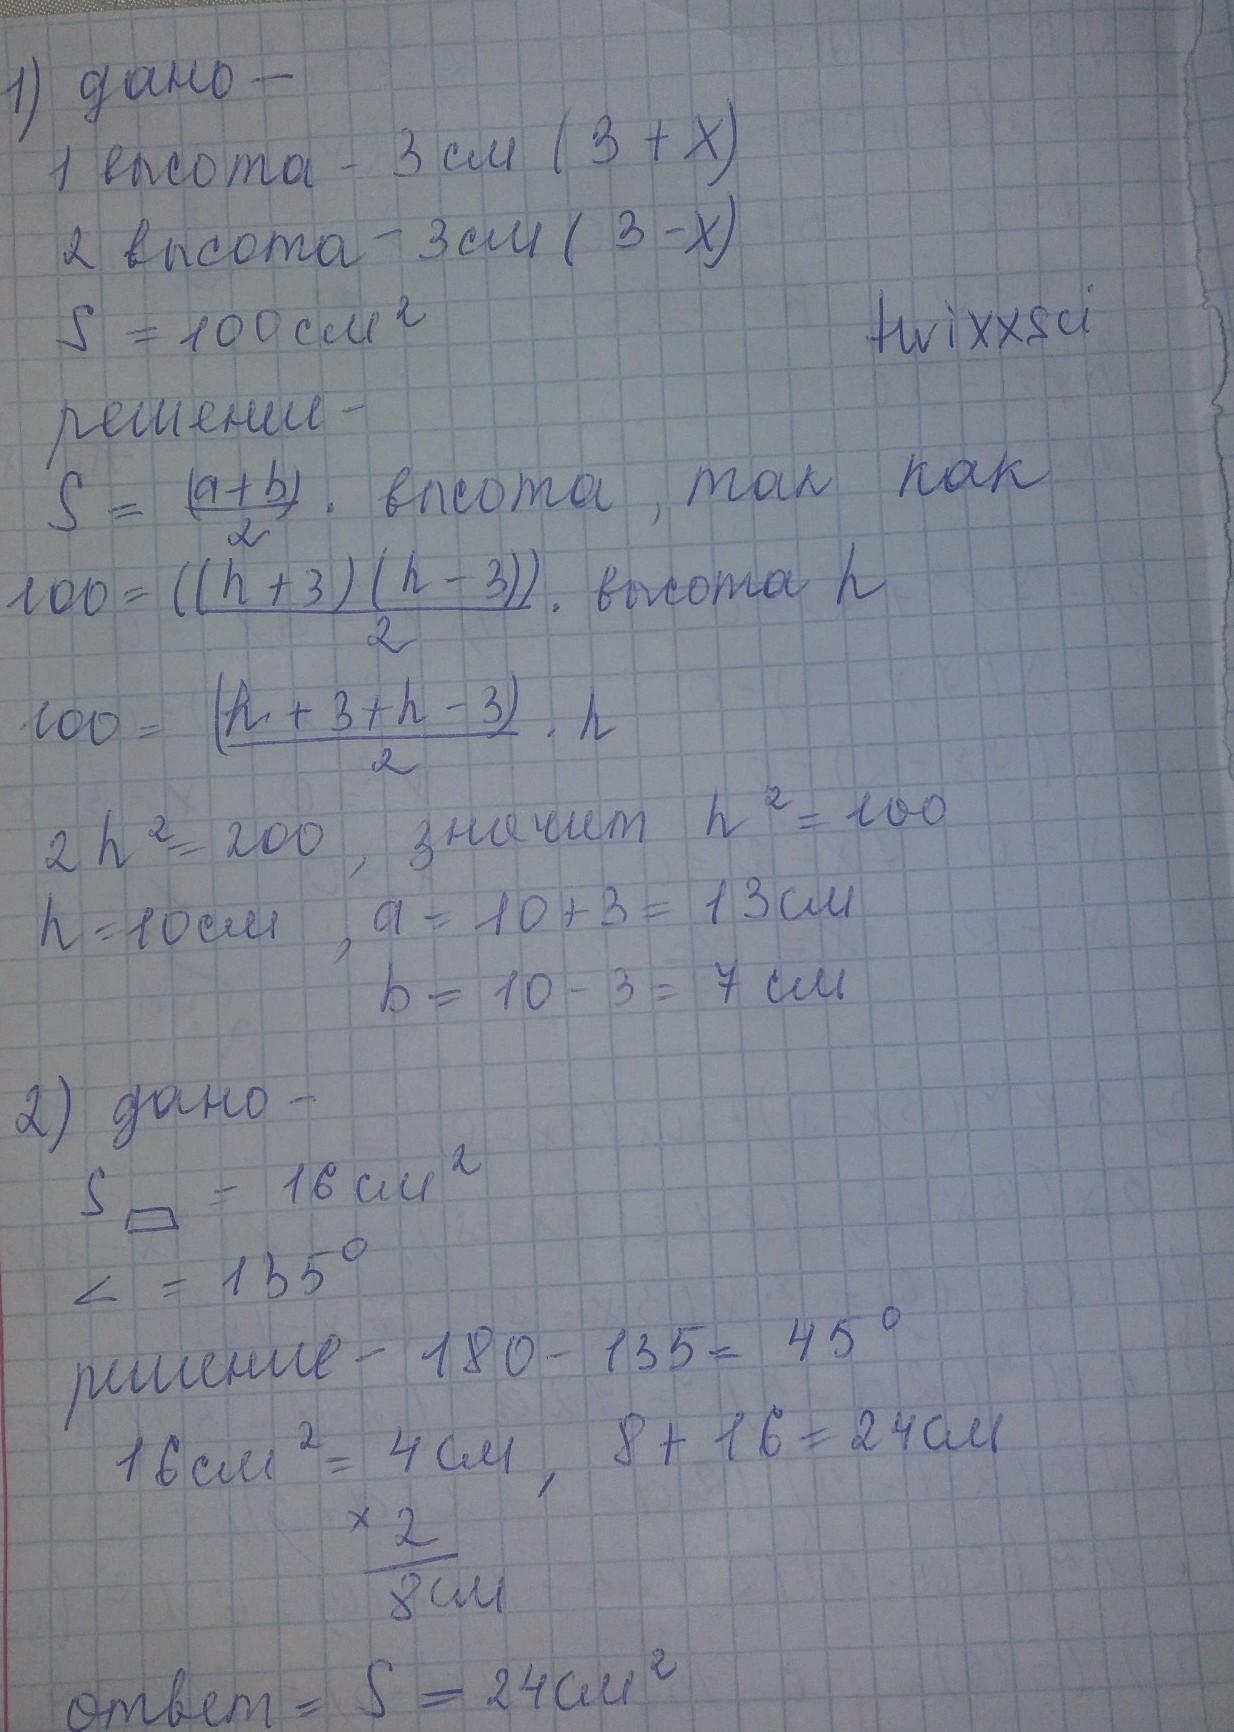 1) дано -
1 высота - 3 см (3 + x)
2 высота - 3 см (3 - x)
S = 100 см²
twixxsci
решение -
S = (a+b)/2 · высота, так как
100 = ((h+3)(h-3))/2 · высота h
100 = (h + 3 + h - 3)/2 · h
2h² = 200, значит h² = 100
h = 10 см, a = 10 + 3 = 13 см
b = 10 - 3 = 7 см
2) дано -
S▱ = 16 см²
∠ = 135°
решение - 180 - 135 = 45°
16 см² = 4 см, 8 + 16 = 24 см
× 2
8 см
ответ = S = 24 см²